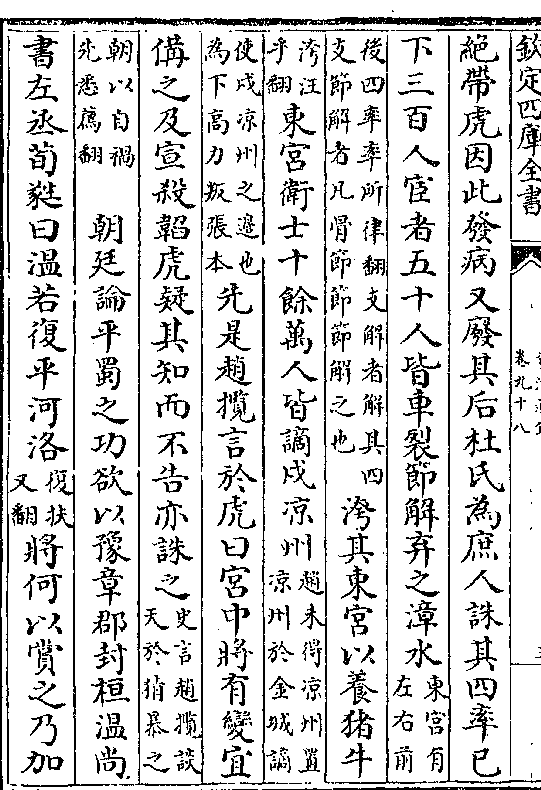 欽定四庫全書 卷九十八
絕帶虎因此發病又廢其后杜氏為庶人誅其四率已
下三百人宦者五十人皆車裂節解弃之漳水東宮有左右前
後四率率所律翻支解者解其四支節解者凡骨節節節解之也洿其東宮以養猪牛
洿汪乎翻東宮衛士十餘萬人皆謫戍凉州趙未得凉州置凉州於金城謫
使戍凉州之邊也為下高力叛張本先是趙攬言於虎曰宮中將有變宜
備之及宣殺韜虎疑其知而不告亦誅之史言趙攬談天於猜暴之
朝以自禍先悉薦翻 朝廷論平蜀之功欲以豫章郡封桓温尚
書左丞荀蕤曰温若復平河洛復扶又翻將何以賞之乃加